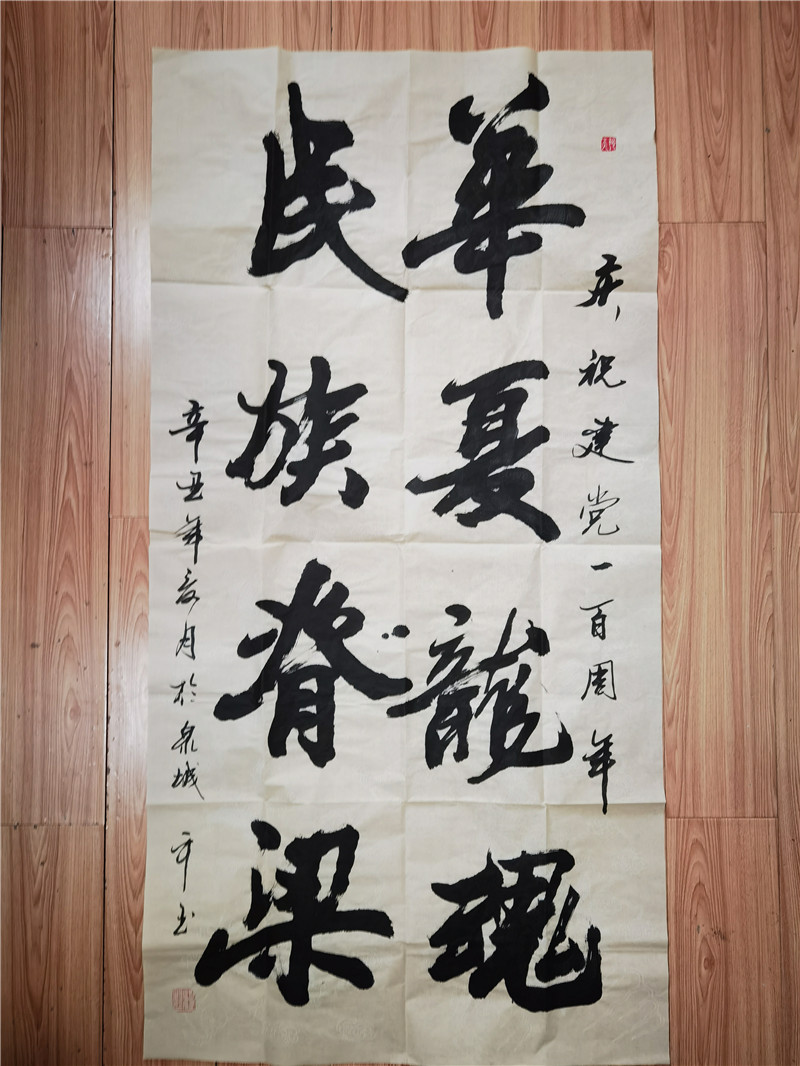 庆祝建党一百周年
華夏龍魂
民族脊梁
辛丑年夏月於泉城